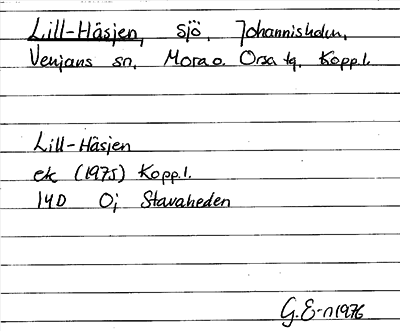 Lill-Häsjen, sjö. Johannisholm,
Venjans sn. Mora o. Orsa tg. Kopp.l.
Lill-Häsjen
ek (1975) Kopp.l.
14D 0j Stavaheden
G.E-n 1976